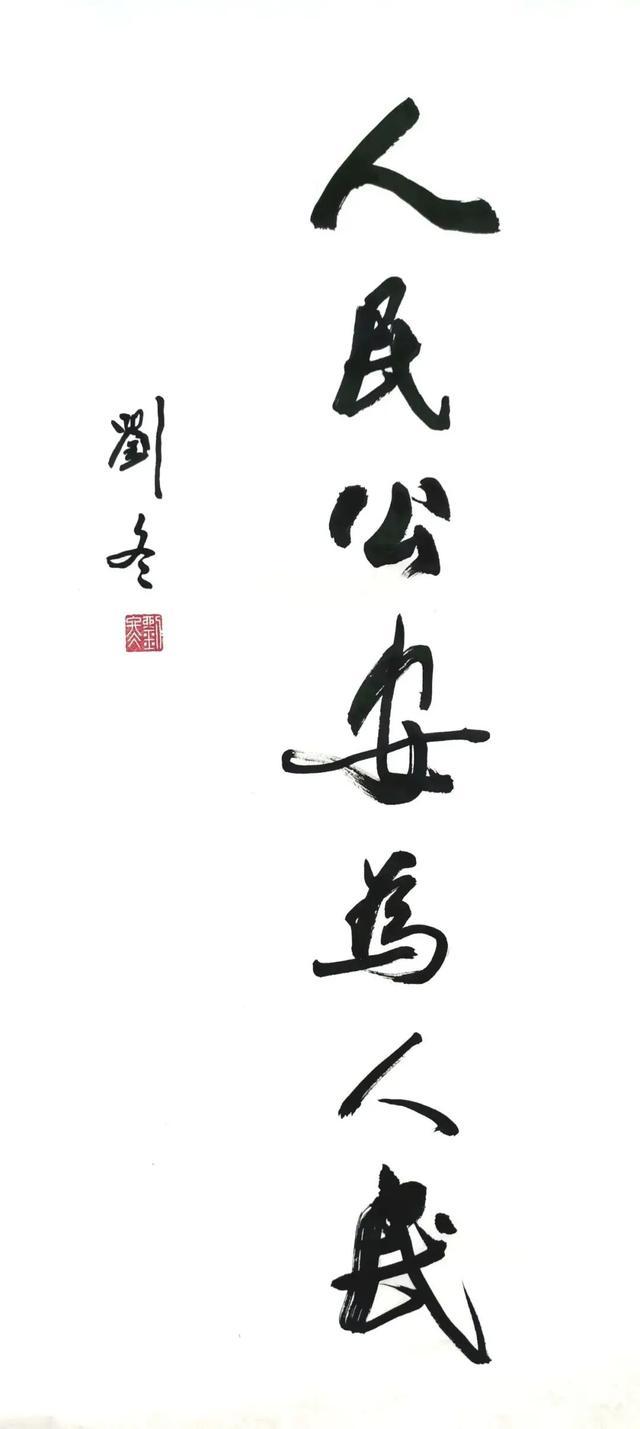 人民公安為人民
劉冬